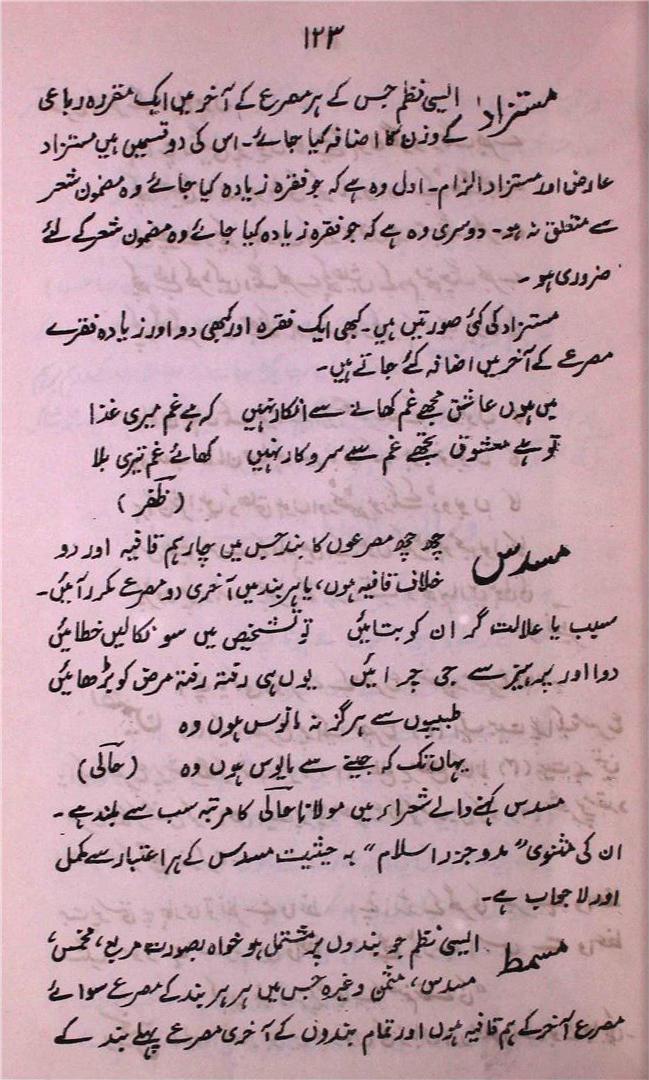 ۱۲۳
مستزاد ایسی نظم جس کے ہر مصرع کے آخر میں ایک مقررہ رباعی
کے وزن کا اضافہ کیا جائے۔ اس کی دو قسمیں ہیں مستزاد
عارض اور مستزاد الزام۔ اول وہ ہے کہ جو فقرہ زیادہ کیا جائے وہ مضمون شعر
سے متعلق نہ ہو۔ دوسری وہ ہے کہ جو فقرہ زیادہ کیا جائے وہ مضمون شعر کے لئے
ضروری ہو۔
مستزاد کی کئی صورتیں ہیں۔ کبھی ایک فقرہ اور کبھی دو اور زیادہ فقرے
مصرعے کے آخر میں اضافہ کئے جاتے ہیں۔
میں ہوں عاشق مجھے غم کھانے سے انکار نہیں کہ ہے غم میری غذا
تو ہے معشوق تجھے غم سے سروکار نہیں کھائے غم تیری بلا
(ظفر)
مسدس چھ چھ مصرعوں کا بند جس میں چار ہم قافیہ اور دو
خلاف قافیہ ہوں، یا ہر بند میں آخری دو مصرعے مکرر آئیں۔
سبب یا علالت گر ان کو بتائیں تو تشخیص میں سو نکالیں خطائیں
دوا اور پرہیز سے جی چرائیں یوں ہی رفتہ رفتہ مرض کو بڑھائیں
طبیبوں سے ہرگز نہ مانوس ہوں وہ
یہاں تک کہ جینے سے مایوس ہوں وہ (حالی)
مسدس کہنے والے شعراء میں مولانا حالی کا مرتبہ سب سے بلند ہے۔
ان کی مثنوی "مدوجزر اسلام" بہ حیثیت مسدس کے ہر اعتبار سے مکمل
اور لاجواب ہے۔
مسمط ایسی نظم جو بندوں پر مشتمل ہو خواہ بصورت مربع، مخمس،
مسدس، مثمن وغیرہ جس میں ہر ہر بند کے مصرعے سوائے
مصرع آخر کے ہم قافیہ ہوں اور تمام بندوں کے آخری مصرعے پہلے بند کے